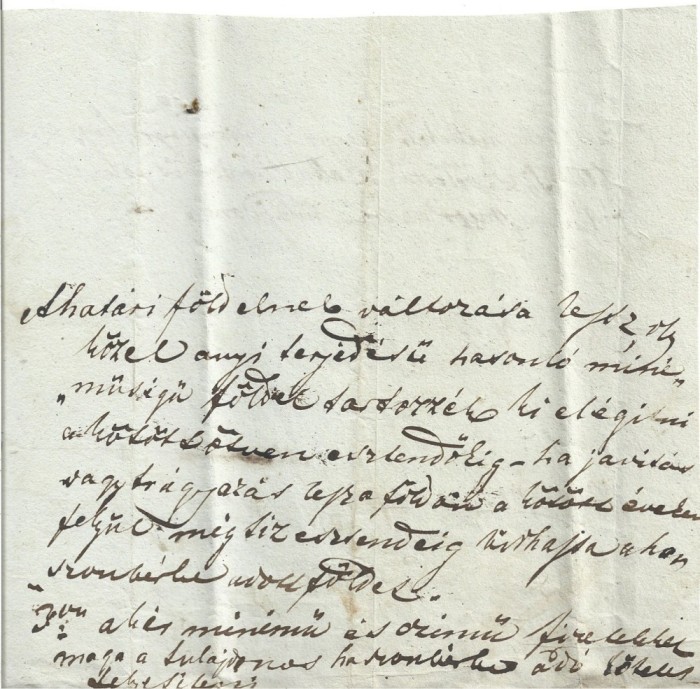 A határi földeknek változása lessz, oly
közel anyi terjedésü hasonló miné„
„müségü földel tartozzék ki elégitni
a kötött ötven esztendökig – ha javitás
vagy trágyazás lessz a földön a kötött éveken
feljül még tiz esztendeig birhassa a han
szonbérbe adott földet.
3or a bár minémü és czimü fizetéseket
maga a tulajdonos haszonbérbe adó köteles
teljesiteni